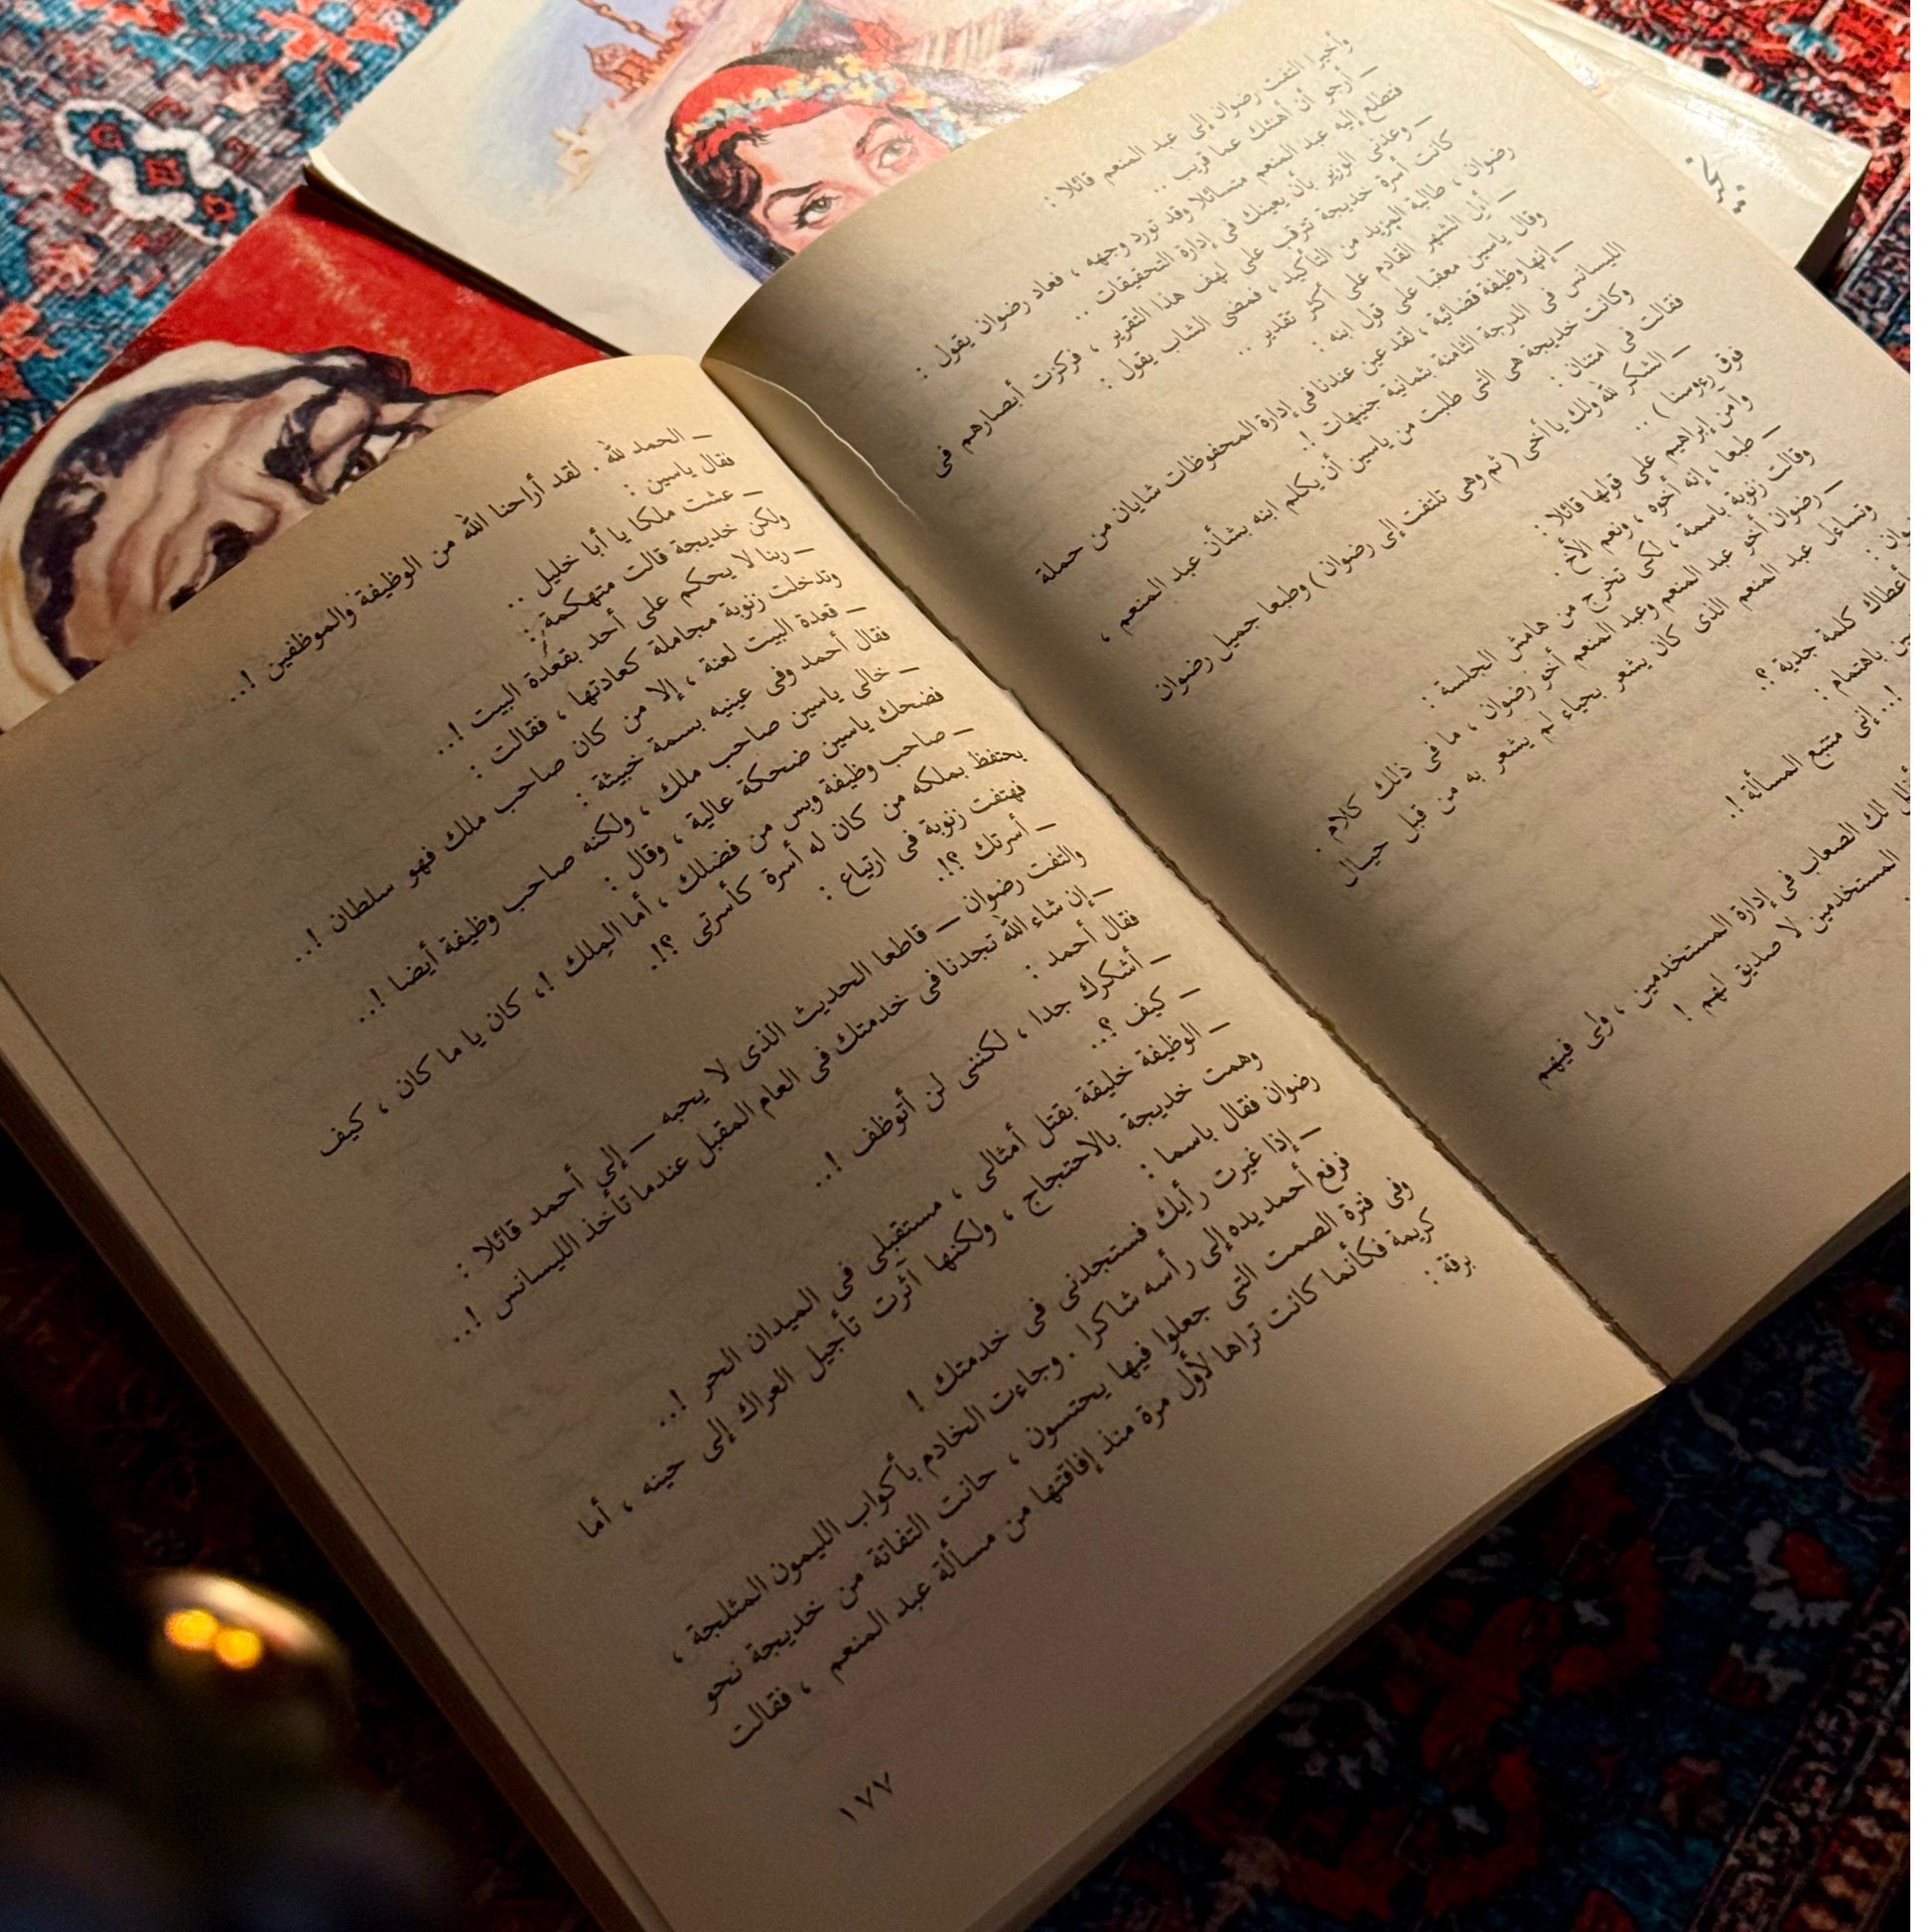 وأخيرا التفت رضوان إلى عبد المنعم قائلا :
— أرجو أن أهنئك عما قريب ..
فتطلع إليه عبد المنعم متسائلا وقد تورد وجهه ، فعاد رضوان يقول :
— وعدنى الوزير بأن يعينك فى إدارة التحقيقات ..
كانت أسرة خديجة تترقب على لهف هذا التقرير ، فركزت أبصارهم فى
رضوان ، طالبة المزيد من التأكيد ، فمضى الشاب يقول :
— أول الشهر القادم على أكثر تقدير ..
وقال ياسين معقبا على قول ابنه :
— إنها وظيفة قضائية ، لقد عين عندنا فى إدارة المحفوظات شابان من حملة
الليسانس فى الدرجة الثامنة بثمانية جنيهات !.
وكانت خديجة هى التى طلبت من ياسين أن يكلم ابنه بشأن عبد المنعم ،
فقالت فى امتنان :
— الشكر لله ولك يا أخى ( ثم وهى تلتفت إلى رضوان ) وطبعا جميل رضوان
فوق رءوسنا ) ..
وآمن إبراهيم على قولها قائلا :
— طبعا ، إنه أخوه ، ونعم الأخ .
وقالت زنوبة باسمة ، لكى تخرج من هامش الجلسة :
— رضوان أخو عبد المنعم وعبد المنعم أخو رضوان ، ما فى ذلك كلام .
وتساءل عبد المنعم الذى كان يشعر بحياء لم يشعر به من قبل حيال
أعطاك كلمة جدية ؟.
باهتمام :
!... إنى متتبع المسألة !.
لك الصعاب فى إدارة المستخدمين ، ولى فيهم
المستخدمين لا صديق لهم !
— الحمد لله . لقد أراحنا الله من الوظيفة والموظفين !..
فقال ياسين :
— عشت ملكا يا أبا خليل ..
ولكن خديجة قالت متهكمة :
— ربنا لا يحكم على أحد بقعدة البيت !..
وتدخلت زنوبة مجاملة كعادتها ، فقالت :
— قعدة البيت لعنة ، إلا من كان صاحب ملك فهو سلطان !..
فقال أحمد وفى عينيه بسمة خبيثة :
— خالى ياسين صاحب ملك ، ولكنه صاحب وظيفة أيضا !..
فضحك ياسين ضحكة عالية ، وقال :
— صاحب وظيفة وبس من فضلك ، أما الملك !، كان يا ما كان ، كيف
يحتفظ بملكه من كان له أسرة كأسرتى ؟!.
فهتفت زنوبة فى ارتياع :
— أسرتك ؟!.
والتفت رضوان — قاطعا الحديث الذى لا يحبه — إلى أحمد قائلا :
— إن شاء الله تجدنا فى خدمتك فى العام المقبل عندما تأخذ الليسانس !..
فقال أحمد :
— أشكرك جدا ، لكننى لن أتوظف !..
— كيف ؟..
— الوظيفة خليقة بقتل أمثالى ، مستقبلى فى الميدان الحر !..
وهمت خديجة بالاحتجاج ، ولكنها آثرت تأجيل العراك إلى حينه ، أما
رضوان فقال باسما :
— إذا غيرت رأيك فستجدنى فى خدمتك !
فرفع أحمد يده إلى رأسه شاكرا . وجاءت الخادم بأكواب الليمون المثلجة ،
وفى فترة الصمت التى جعلوا فيها يحتسون ، حانت التفاتة من خديجة نحو
كريمة فكأنما كانت تراها لأول مرة منذ إفاقتها من مسألة عبد المنعم ، فقالت
برقة :
١٧٧